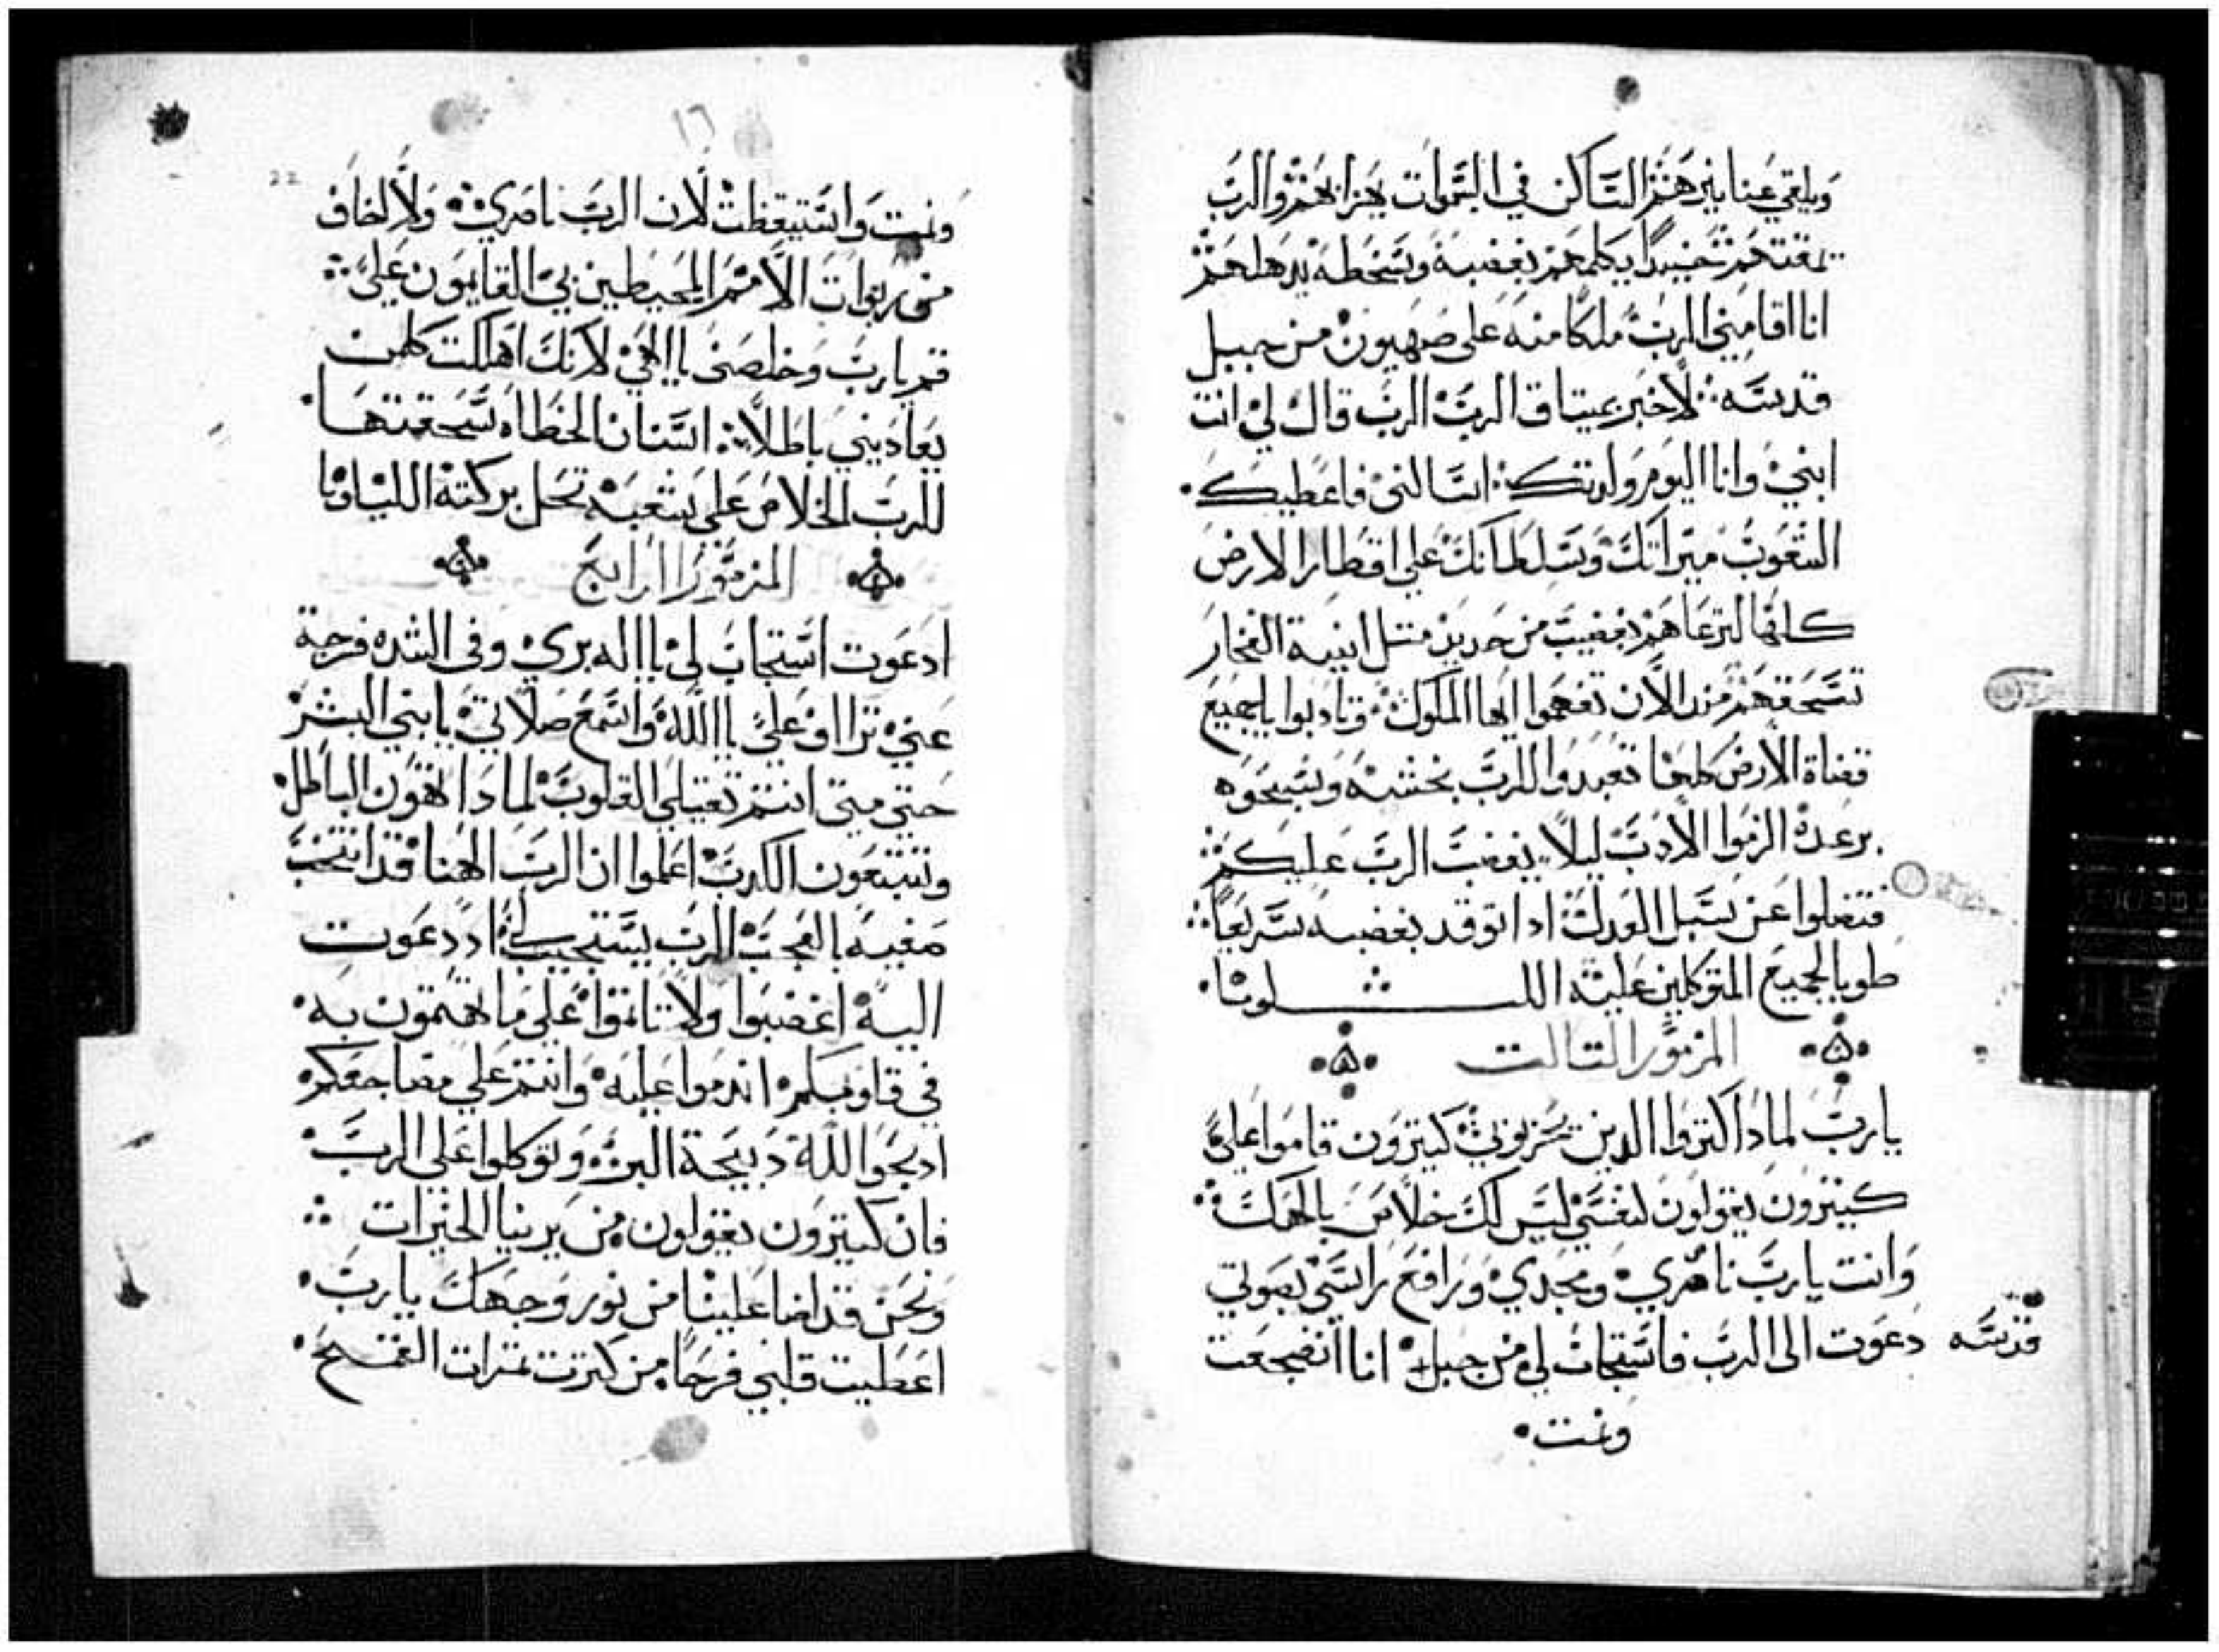 ويلقي عنا نيرهم الساكن في السموات يهزا بهم والرب
يمقتهم حينيدا يكلمهم بغضبه وبسخطه يدهلهم
انا اقامني الرب ملكا منه علي صهيون من جبل
قدسه لاخبر بميتاق الرب الرب قال لي انت
ابني وانا اليوم ولدتك اسالني فاعطيك
الشعوب ميراتك وسلطانك علي اقطار الارض
كلها لترعاهم بقضيب من حديد متل انية الفخار
تسحقهم من الان تفهموا ايها الملوك وتادبوا ياجميع
قضاة الارض كلها تعبدوا للرب بخشيه وسبحوه
برعدة الزموا الادب ليلا يغضب الرب عليكم
فتضلوا عن سبل العدل ادا توقد بغضبه سريعا
طوبا لجميع المتوكلين عليه الليلويا
المزمور التالت
يارب لمادا كتروا الدين يحزنوني كتيرون قاموا علي
كتيرون يقولون لنفسي ليس لك خلاص بالهك
وانت يارب ناصري ومجدي ورافع راسي بصوتي
دعوت الى الرب فاستجاب لي من جبل انا انضجعت
قدسه
ونمت
١٦
22
ونمت واستيقظت لان الرب ناصري ولا اخاف
من ربوات الامم المحيطين بي القايمون علي
قم يارب وخلصني يا الهي لانك اهلكت كلمن
يعاديني باطلا اسنان الخطاه سحقتها
للرب الخلاص علي شعبه تحل بركته الليلويا
المزمور الرابع
اد دعوت استجاب لي يا اله بري وفي الشده فرجة
عني تراف علي يا الله واسمع صلاتي يا بني البشر
حتي متي انتم تقيلي القلوب لمادا تهوون الباطل
وتتبعون الكدب اعلموا ان الرب الهنا قد انتخب
صفيه بالعجب الرب يستجيب لي اد دعوت
اليه اغضبوا ولا تاتموا علي ما تهتمون به
في قلوبكم اندموا عليه وانتم علي مضاجعكم
ادبحوا لله دبيحة البر وتوكلوا علي الرب
فان كتيرون يقولون من يرينا الخيرات
ونحن قد اضا علينا من نور وجهك يارب
اعطيت قلبي فرحا من كترت تمرات القمح